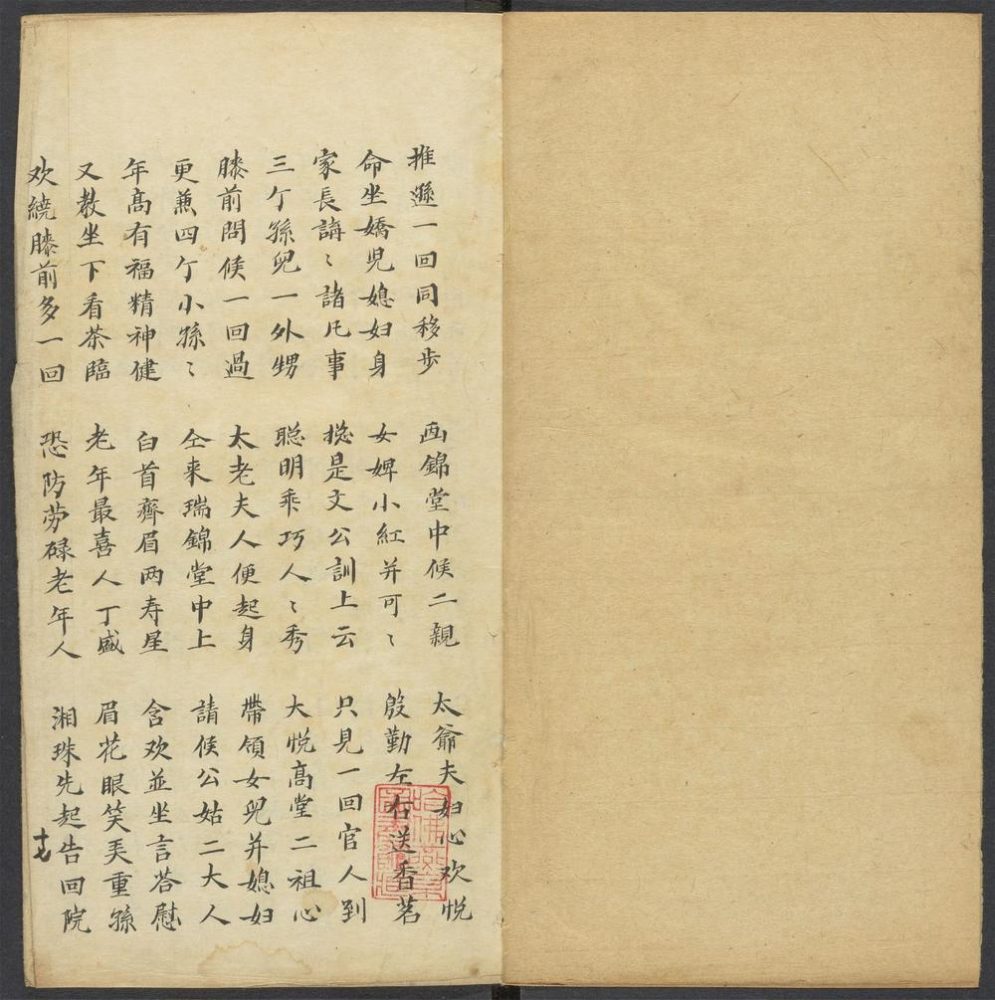 推遜一回同移步 西錦堂中候二親 太爺夫妇心欢悦
命坐嬌児媳妇身 女婢小紅并可〻 殷勤左右送香茗
家長講〻諸凡事 捴是文公訓上云 只見一回官人到
三亇孫兒一外甥 聡明乖巧人〻秀 大悦高堂二祖心
膝前問候一回過 太老夫人便起身 帶領女兒并媳妇
更兼四亇小孫〻 仝来瑞錦堂中上 請候公姑二大人
年髙有福精神健 白首齊眉两寿星 含欢並坐言答慰
又教坐下看茶臨 老年最喜人丁盛 眉花眼笑美重孫
欢繞膝前多一回 恐防劳碌老年人 湘珠先起告回院
十七
哈佛燕京